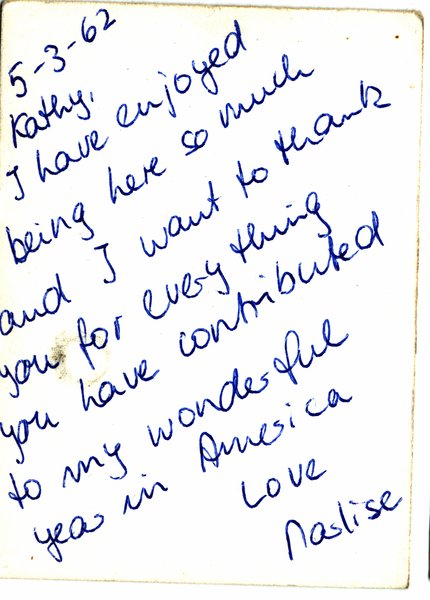 5-3-62
Kathy,
I have enjoyed
being here so much
and I want to thank
you for every thing
you have contributed
to my wonderful
year in America
Love
Marlise